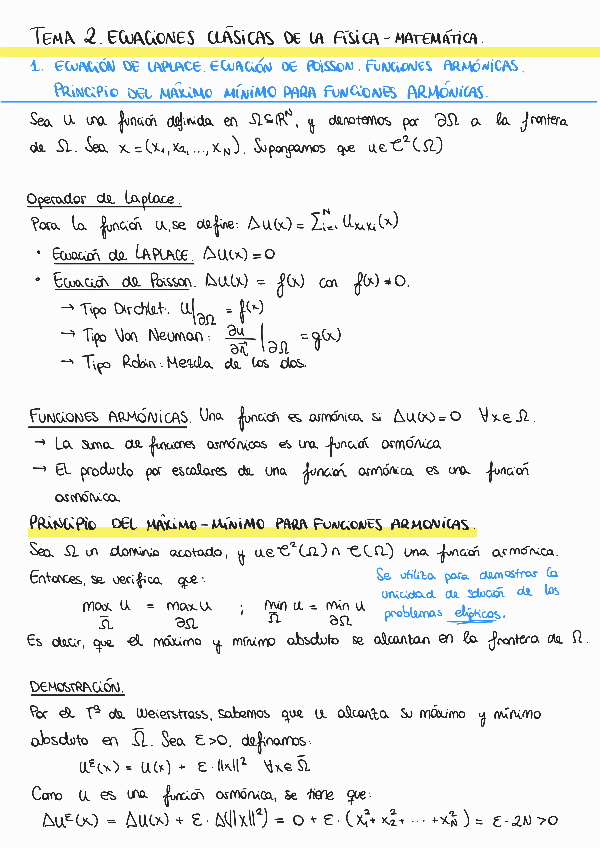 TEMA 2. ECUACIONES CLÁSICAS DE LA FÍSICA - MATEMÁTICA.
1. ECUACIÓN DE LAPLACE. ECUACIÓN DE POISSON. FUNCIONES ARMÓNICAS.
PRINCIPIO DEL MÁXIMO MÍNIMO PARA FUNCIONES ARMÓNICAS.
Sea u una función definida en Ω⊆ℝᴺ, y denotemos por ∂Ω a la frontera
de Ω. Sea x = (x₁, x₂, ..., x_N). Supongamos que u∈C²(Ω)
Operador de Laplace.
Para la función u, se define: Δu(x) = Σᵢ₌₁ᴺ u_{xᵢxᵢ}(x)
• Ecuación de LAPLACE. Δu(x) = 0
• Ecuación de Poisson. Δu(x) = f(x) con f(x) ≠ 0.
→ Tipo Dirchlet: u|∂Ω = f(x)
→ Tipo Von Neuman: ∂u/∂n⃗ |∂Ω = g(x)
→ Tipo Robin: Mezcla de los dos.
FUNCIONES ARMÓNICAS. Una función es armónica si Δu(x) = 0 ∀x∈Ω.
→ La suma de funciones armónicas es una función armónica
→ El producto por escalares de una función armónica es una función
armónica
PRINCIPIO DEL MÁXIMO - MÍNIMO PARA FUNCIONES ARMONICAS.
Sea Ω un dominio acotado, y u∈C²(Ω)∩C(Ω) una función armónica.
Entonces, se verifica que:
Se utiliza para demostrar la
unicidad de solución de los
problemas elípticos.
max u = max u ; min u = min u
Ω̄ ∂Ω Ω̄ ∂Ω
Es decir, que el máximo y mínimo absoluto se alcantan en la frontera de Ω.
DEMOSTRACIÓN.
Por el Tª de Weierstrass, sabemos que u alcanza su máximo y mínimo
absoluto en Ω̄. Sea ε>0, definamos:
uᵋ(x) = u(x) + ε·||x||² ∀x∈Ω̄
Como u es una función armónica, se tiene que:
Δuᵋ(x) = Δu(x) + ε·Δ(||x||²) = 0 + ε·(x₁²+x₂²+ ... +x_N²) = ε·2N >0